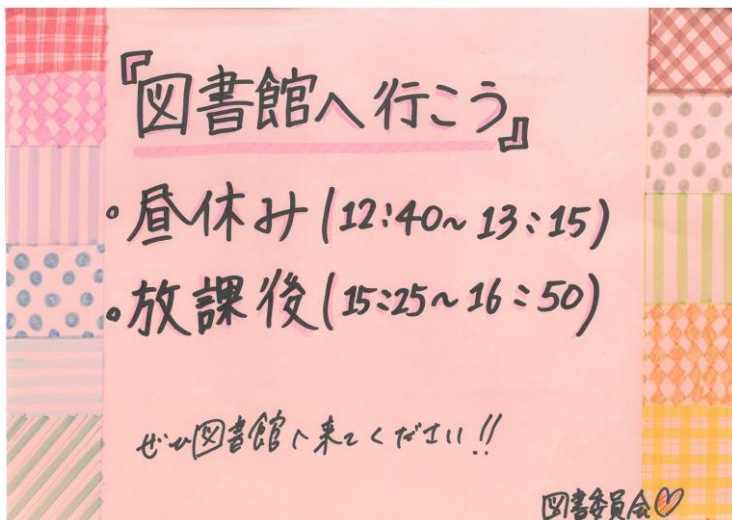 『図書館へ行こう』
・昼休み(12:40~13:15)
・放課後(15:25~16:50)
ぜひ図書館へ来てください!!
図書委員会♡